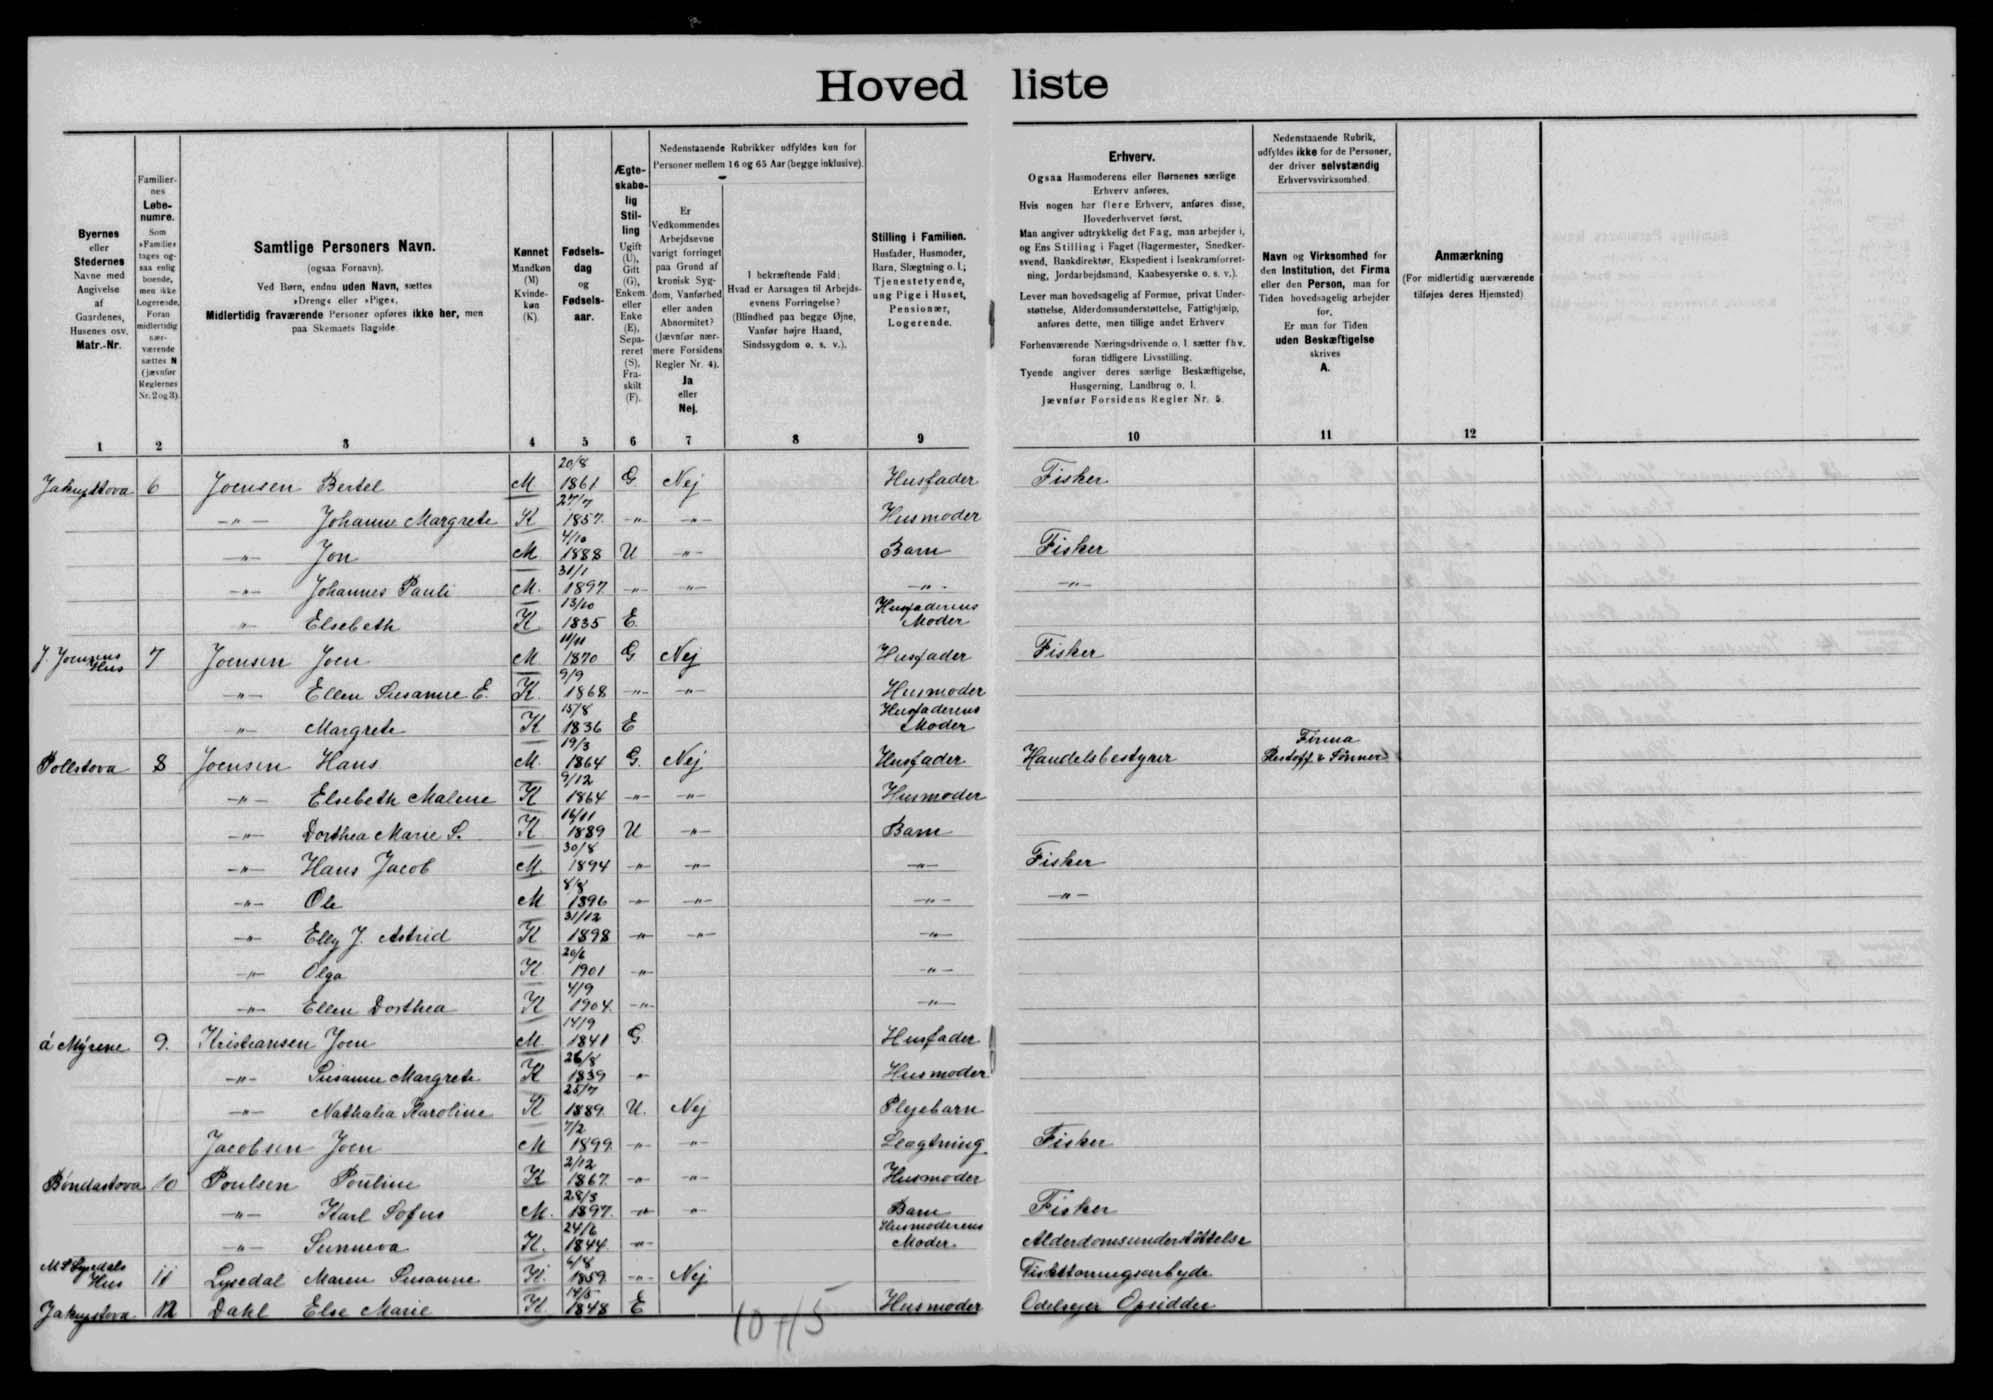 Hovedliste
Byernes eller Stedernes Navne med Angivelse af Gaardenes, Husenes osv. Matr.-Nr.
Familiernes Løbenumre. Som »Familie« tages ogsaa enlig boende, men ikke Logerende. Foran midlertidig nærværende sættes N (jævnfør Reglernes Nr. 2 og 3).
Samtlige Personers Navn.
(ogsaa Fornavn).
Ved Børn, endnu uden Navn, sættes
»Dreng« eller »Pige«.
Midlertidig fraværende Personer opføres ikke her, men
paa Skemaets Bagside.
Kønnet Mandkøn (M) Kvindekøn (K).
Fødselsdag og Fødselsaar.
Ægteskabelig Stilling Ugift (U), Gift (G), Enkemand eller Enke (E), Separeret (S), Fraskilt (F).
Nedenstaaende Rubrikker udfyldes kun for
Personer mellem 16 og 65 Aar (begge inklusive).
Er Vedkommendes Arbejdsevne varigt forringet paa Grund af kronisk Sygdom, Vanførhed eller anden Abnormitet? (Jævnfør nærmere Forsidens Regler Nr. 4). Ja eller Nej.
I bekræftende Fald: Hvad er Aarsagen til Arbejdsevnens Forringelse? (Blindhed paa begge Øjne, Vanfør højre Haand, Sindssygdom o. s. v.).
Stilling i Familien. Husfader, Husmoder, Barn, Slægtning o. l.; Tjenestetyende, ung Pige i Huset, Pensionær, Logerende.
Erhverv.
Ogsaa Husmoderens eller Børnenes særlige
Erhverv anføres.
Hvis nogen har flere Erhverv, anføres disse,
Hovederhvervet først.
Man angiver udtrykkelig det Fag, man arbejder i,
og Ens Stilling i Faget (Bagermester, Snedkersvend, Bankdirektør, Ekspedient i Isenkramforretning, Jordarbejdsmand, Kaabesyerske o. s. v.).
Lever man hovedsagelig af Formue, privat Understøttelse, Alderdomsunderstøttelse, Fattighjælp,
anføres dette, men tillige andet Erhverv
Forhenværende Næringsdrivende o. l. sætter fhv.
foran tidligere Livsstilling.
Tyende angiver deres særlige Beskæftigelse,
Husgerning, Landbrug o. l.
Jævnfør Forsidens Regler Nr. 5.
Nedenstaaende Rubrik,
udfyldes ikke for de Personer,
der driver selvstændig
Erhvervsvirksomhed.
Navn og Virksomhed for
den Institution, det Firma
eller den Person, man for
Tiden hovedsagelig arbejder
for.
Er man for Tiden
uden Beskæftigelse
skrives
A.
Anmærkning
(For midlertidig nærværende
tilføjes deres Hjemsted)
1 2 3 4 5 6 7 8 9 10 11 12
Jákupstova 6 Joensen Bertel M 20/8 1861 G Nej Husfader Fisker
-"- Johanne Margrete K 27/7 1857 -"- -"- Husmoder
-"- Jon M 4/10 1888 U -"- Barn Fisker
-"- Johannes Pauli M. 31/1 1897 -"- -"- -"- -"-
-"- Elsebeth K 13/10 1835 E Husfaderens Moder
J. Joensens Hus 7 Joensen Joen M 11/11 1870 G Nej Husfader Fisker
-"- Ellen Susanne E. K. 9/9 1868 -"- -"- Husmoder
-"- Margrete K 15/8 1836 E Husfaderens Moder
Pollstova 8 Joensen Hans M. 19/3 1864 G. Nej Husfader Handelsbestyrer Firma & Sønner
-"- Elsebeth Malene K 9/12 1864 -"- -"- Husmoder
-"- Dorthea Marie S. K 16/11 1889 U -"- Barn
-"- Hans Jacob M. 30/8 1894 -"- -"- -"- Fisker
-"- Ole M 8/8 1896 -"- -"- -"- -"-
-"- Elly J. Astrid K 31/12 1898 -"- -"- -"-
-"- Olga K 20/6 1901 -"- -"-
-"- Ellen Dorthea K 4/9 1904 -"- -"-
á Mýrene 9. Kristiansen Joen M 14/9 1841 G. Husfader
-"- Susanne Margrete K 26/8 1839 " Husmoder
-"- Nathalia Karoline K 25/7 1889 U. Nej Plejebarn
Jacobsen Joen M 7/2 1899 -"- -"- Slægtning Fisker
Bóndastova 10 Poulsen Pouline K 2/12 1867 -"- -"- Husmoder
-"- Karl Sofus M. 28/3 1897 -"- -"- Barn Fisker
-"- Sunneva K. 24/6 1844 -"- Husmoderens Moder. Alderdomsunderstøttelse
M S Lysedals Hus 11 Lysedal Maren Susanne K. 6/8 1859 -"- Nej
Jákupstova 12 Dahl Else Marie K. 14/5 1848 E Husmoder Odelsejer Opsidder
10 + 15